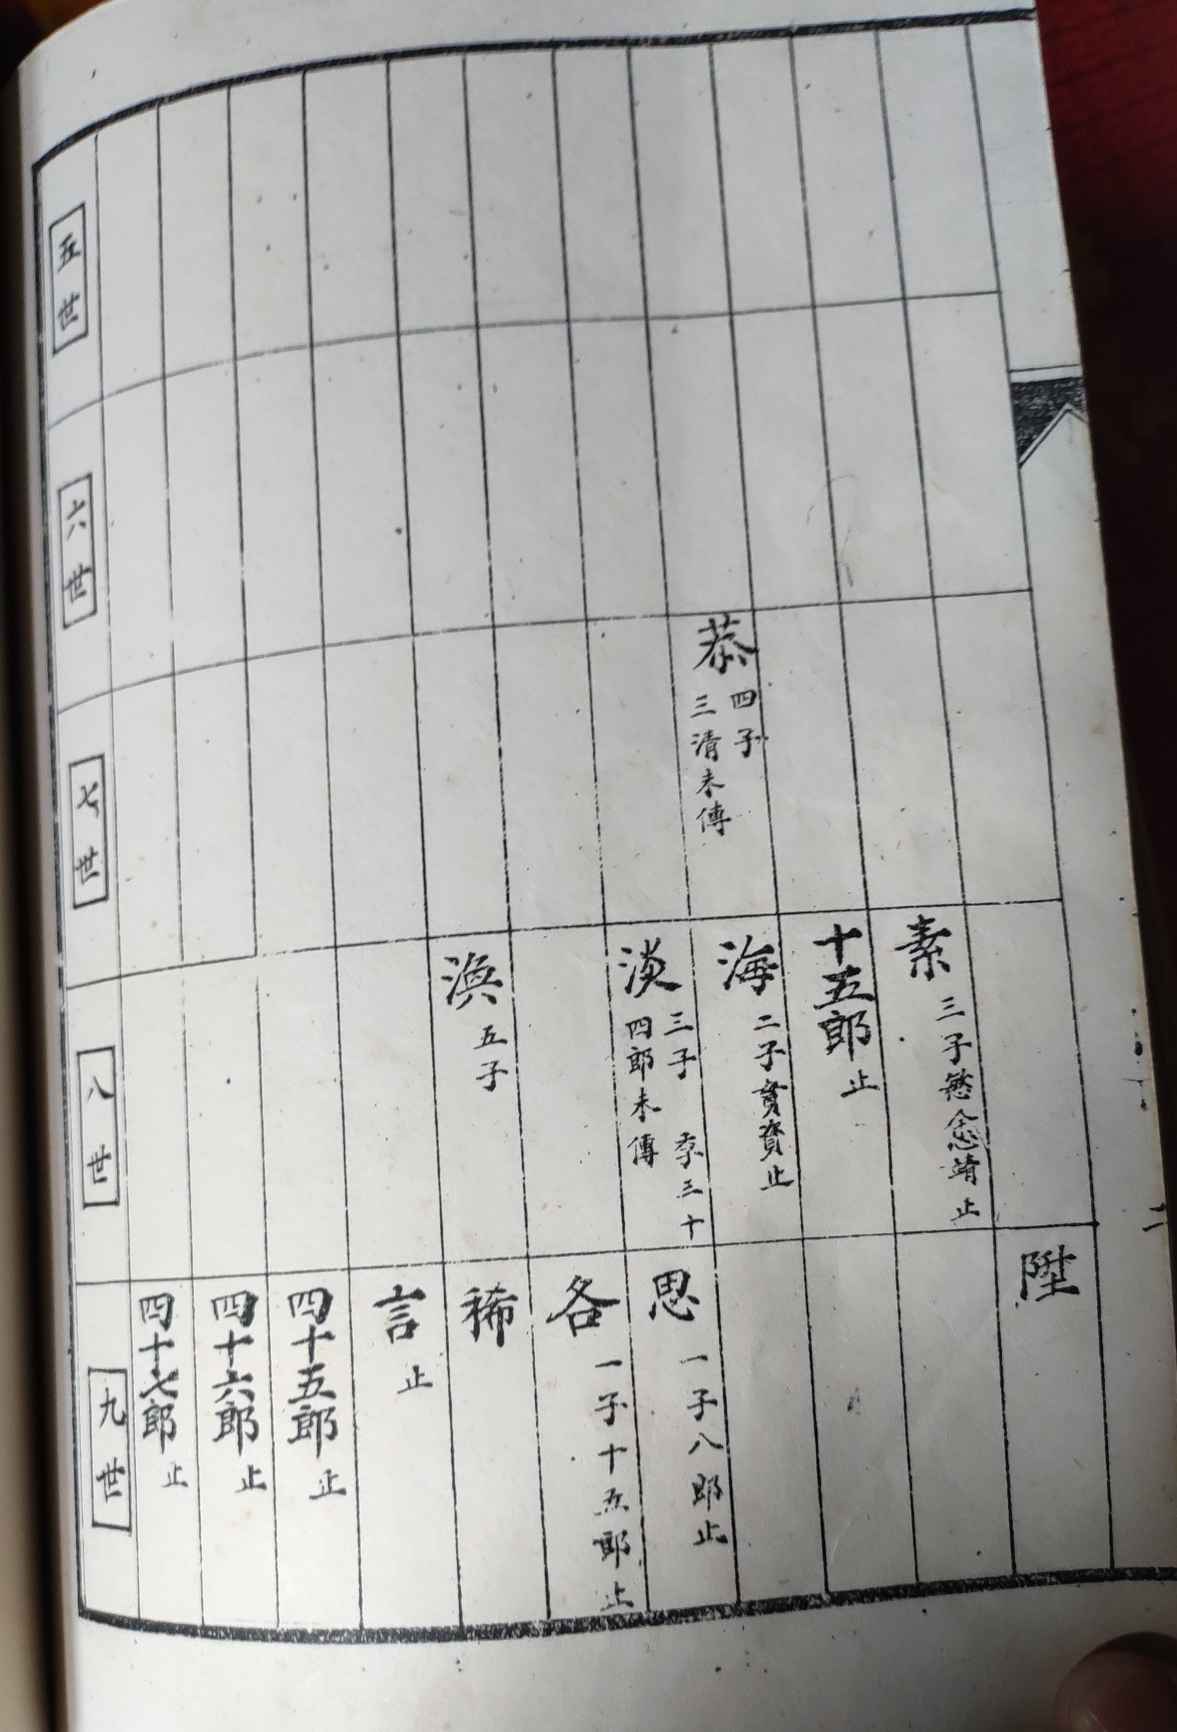 二
陞
素
三子慜念靖止
十五郎
止
海
二子實資止
恭
四子
三清未傳
淡
三子 季三十
四郎未傳
思
一子八郎止
各
一子十五郎止
渙
五子
稀
言
止
四十五郎
止
四十六郎
止
四十七郎
止
五世
六世
七世
八世
九世